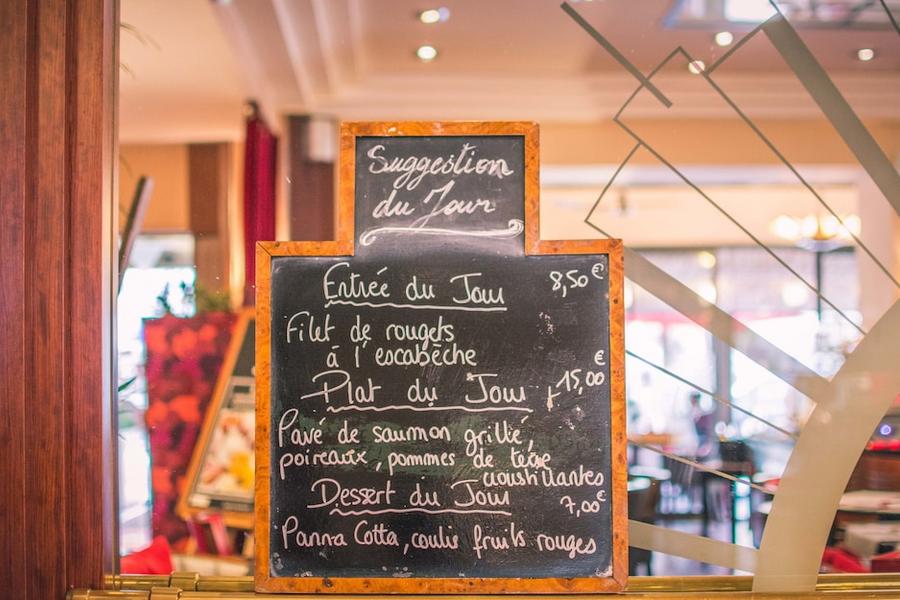 Suggestion
du Jour
Entrée du Jour 8,50€
Filet de rougets
à l'escabèche
Plat du Jour 15,00€
Pavé de saumon grillé,
poireaux, pommes de terre
croustillantes
Dessert du Jour 7,00€
Panna Cotta, coulis fruits rouges